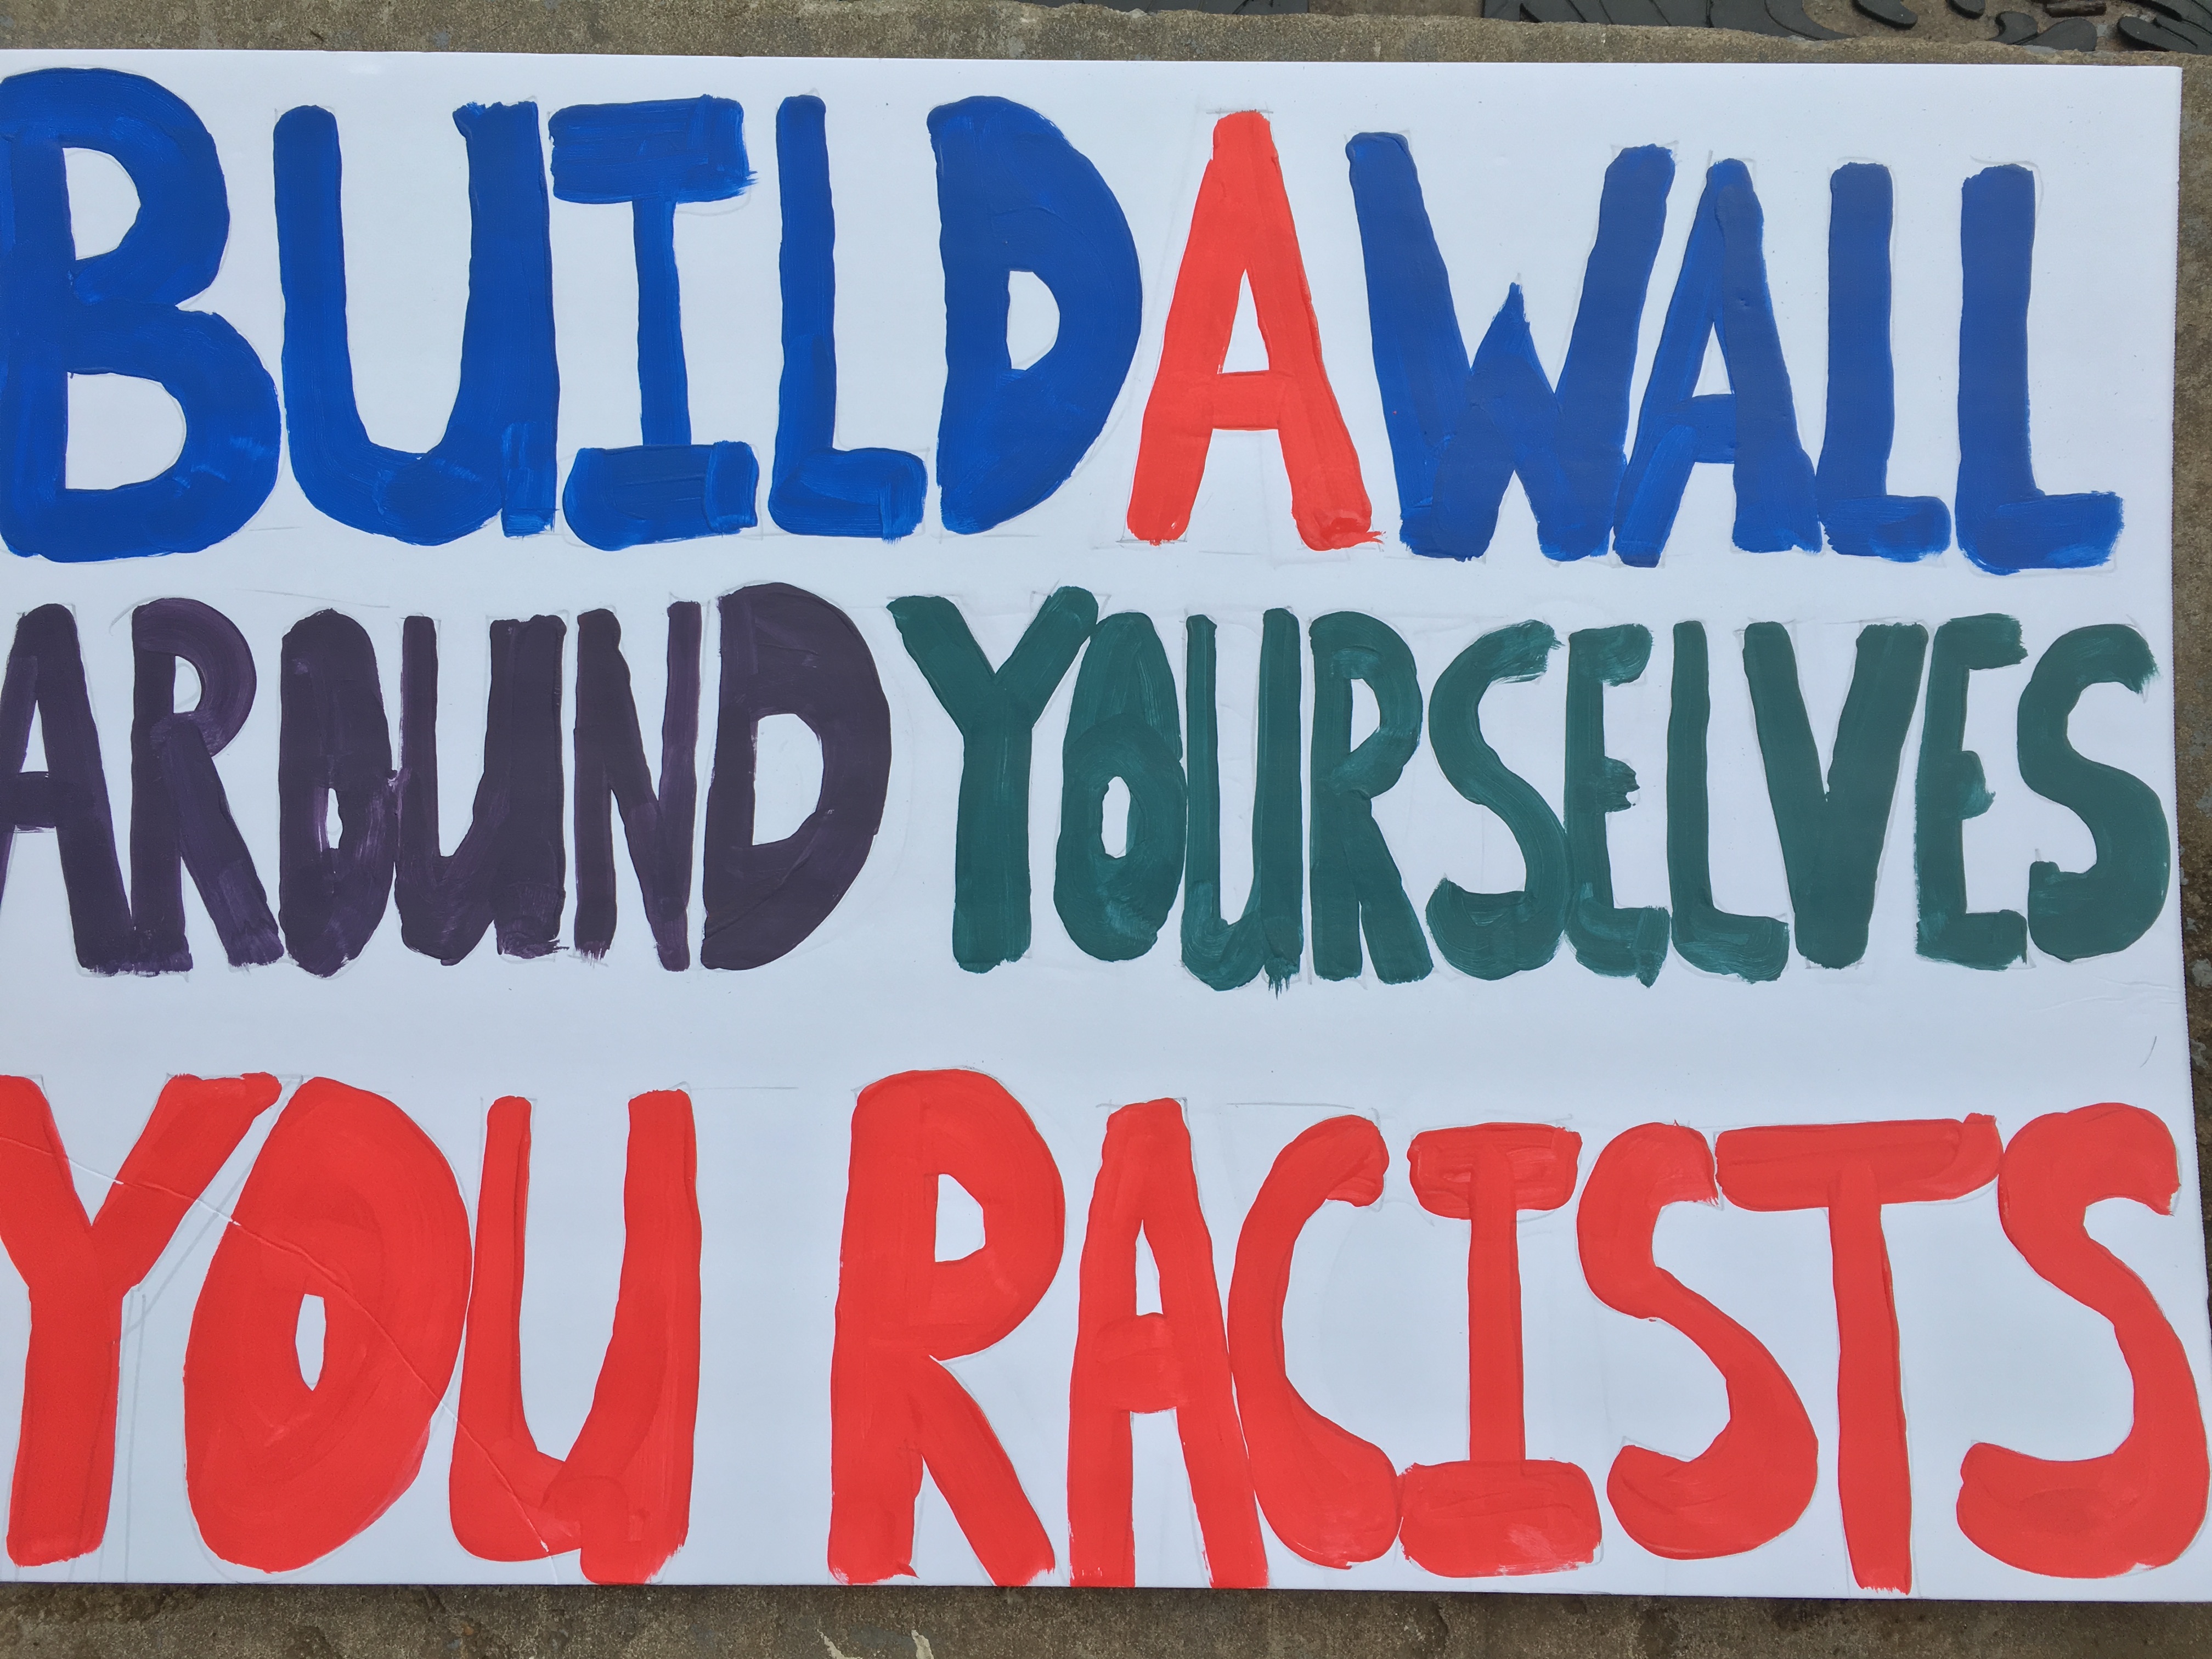 BUILD A WALL
AROUND YOURSELVES
YOU RACISTS